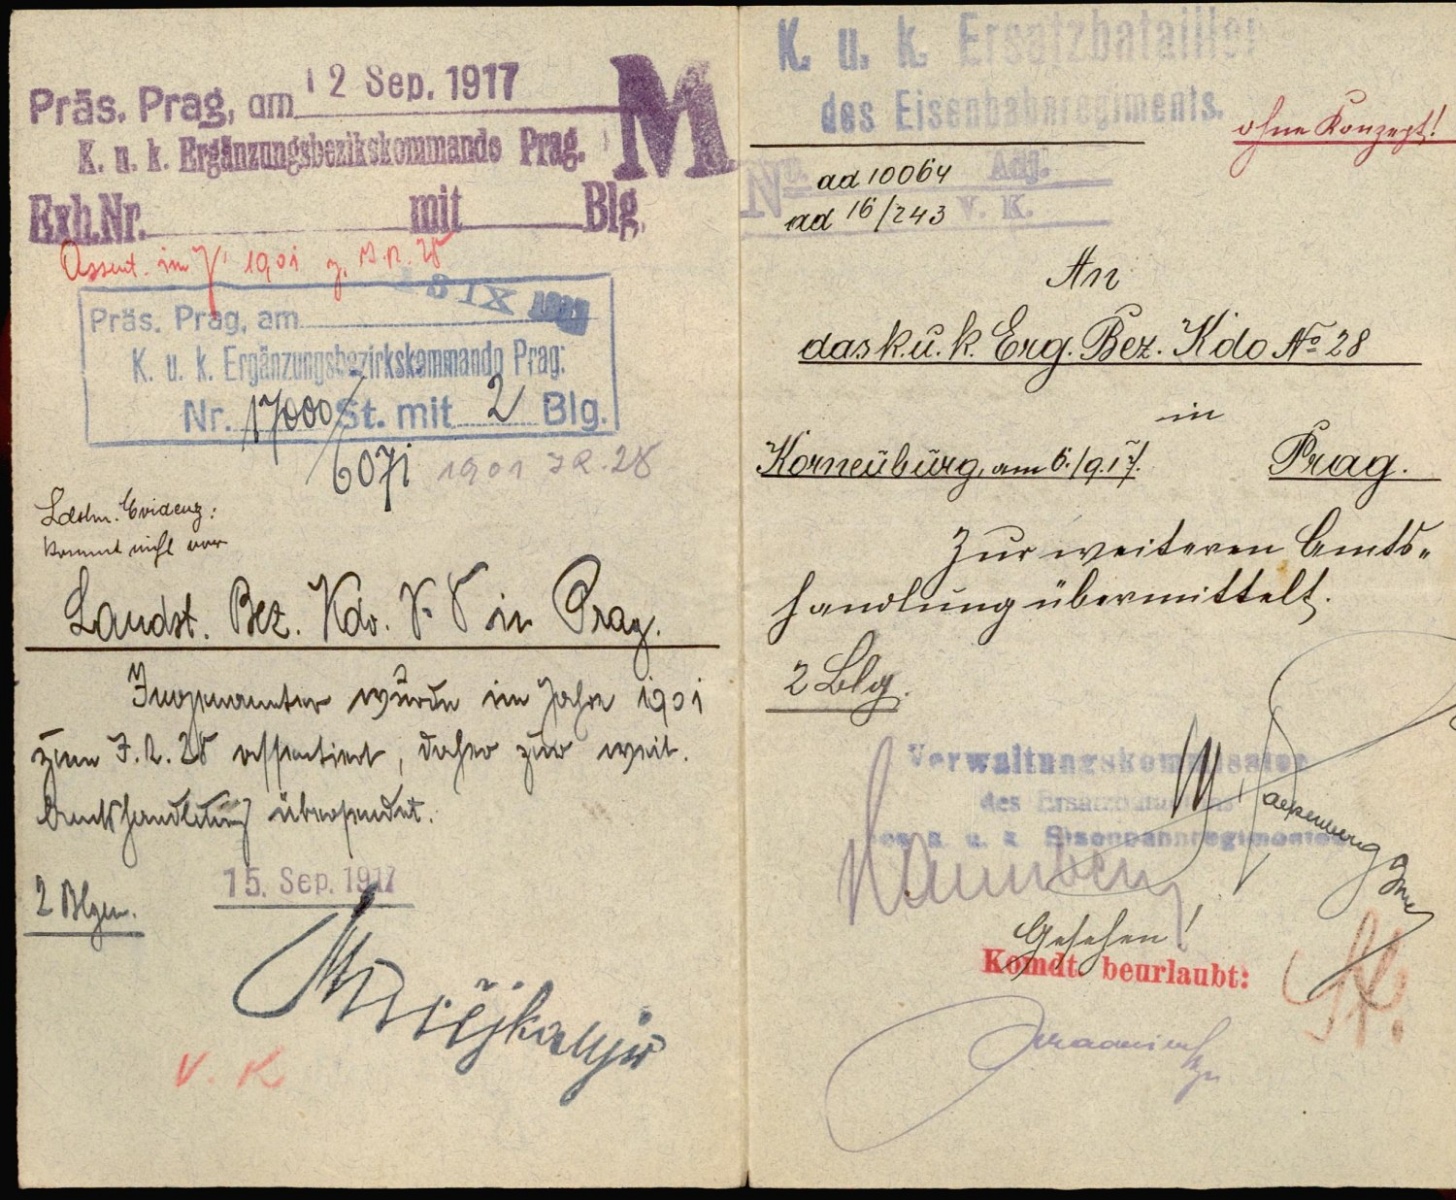 Präs. Prag, am 12 Sep. 1917
K. u. k. Ergänzungsbezikskommando Prag.
M
Exh.Nr. mit Blg.
Assent. im J. 1901 z. I.R. 28
IX
Präs. Prag, am
K. u. k. Ergänzungsbezirkskommando Prag:
Nr. 17000/ St. mit 2 Blg.
6071 1901 I.R. 28
Ldstm. Evidenz:
kommt nicht vor
Landst. Bez. Kdo. in Prag.
Ingenannter wurde im Jahre 1901
zum I.R. 28 assentiert, daher zur weit.
Amtshandlung übersendet.
15. Sep. 1917
2 Blgen.
V. K
K. u. k. Ersatzbataillon
des Eisenbahnregiments.
ohne Konzept!
No. Adj.
ad 10064
V. K.
ad 16/243
An
das k. u. k. Erg. Bez. Kdo No 28
in
Korneuburg, am 6./9.17. Prag.
Zur weiteren Amts-
handlung übermittelt.
2 Blg.
Verwaltungskommissär
des
des k. u. k. Eisenbahnregimentes
Gesehen!
Komdt. beurlaubt: